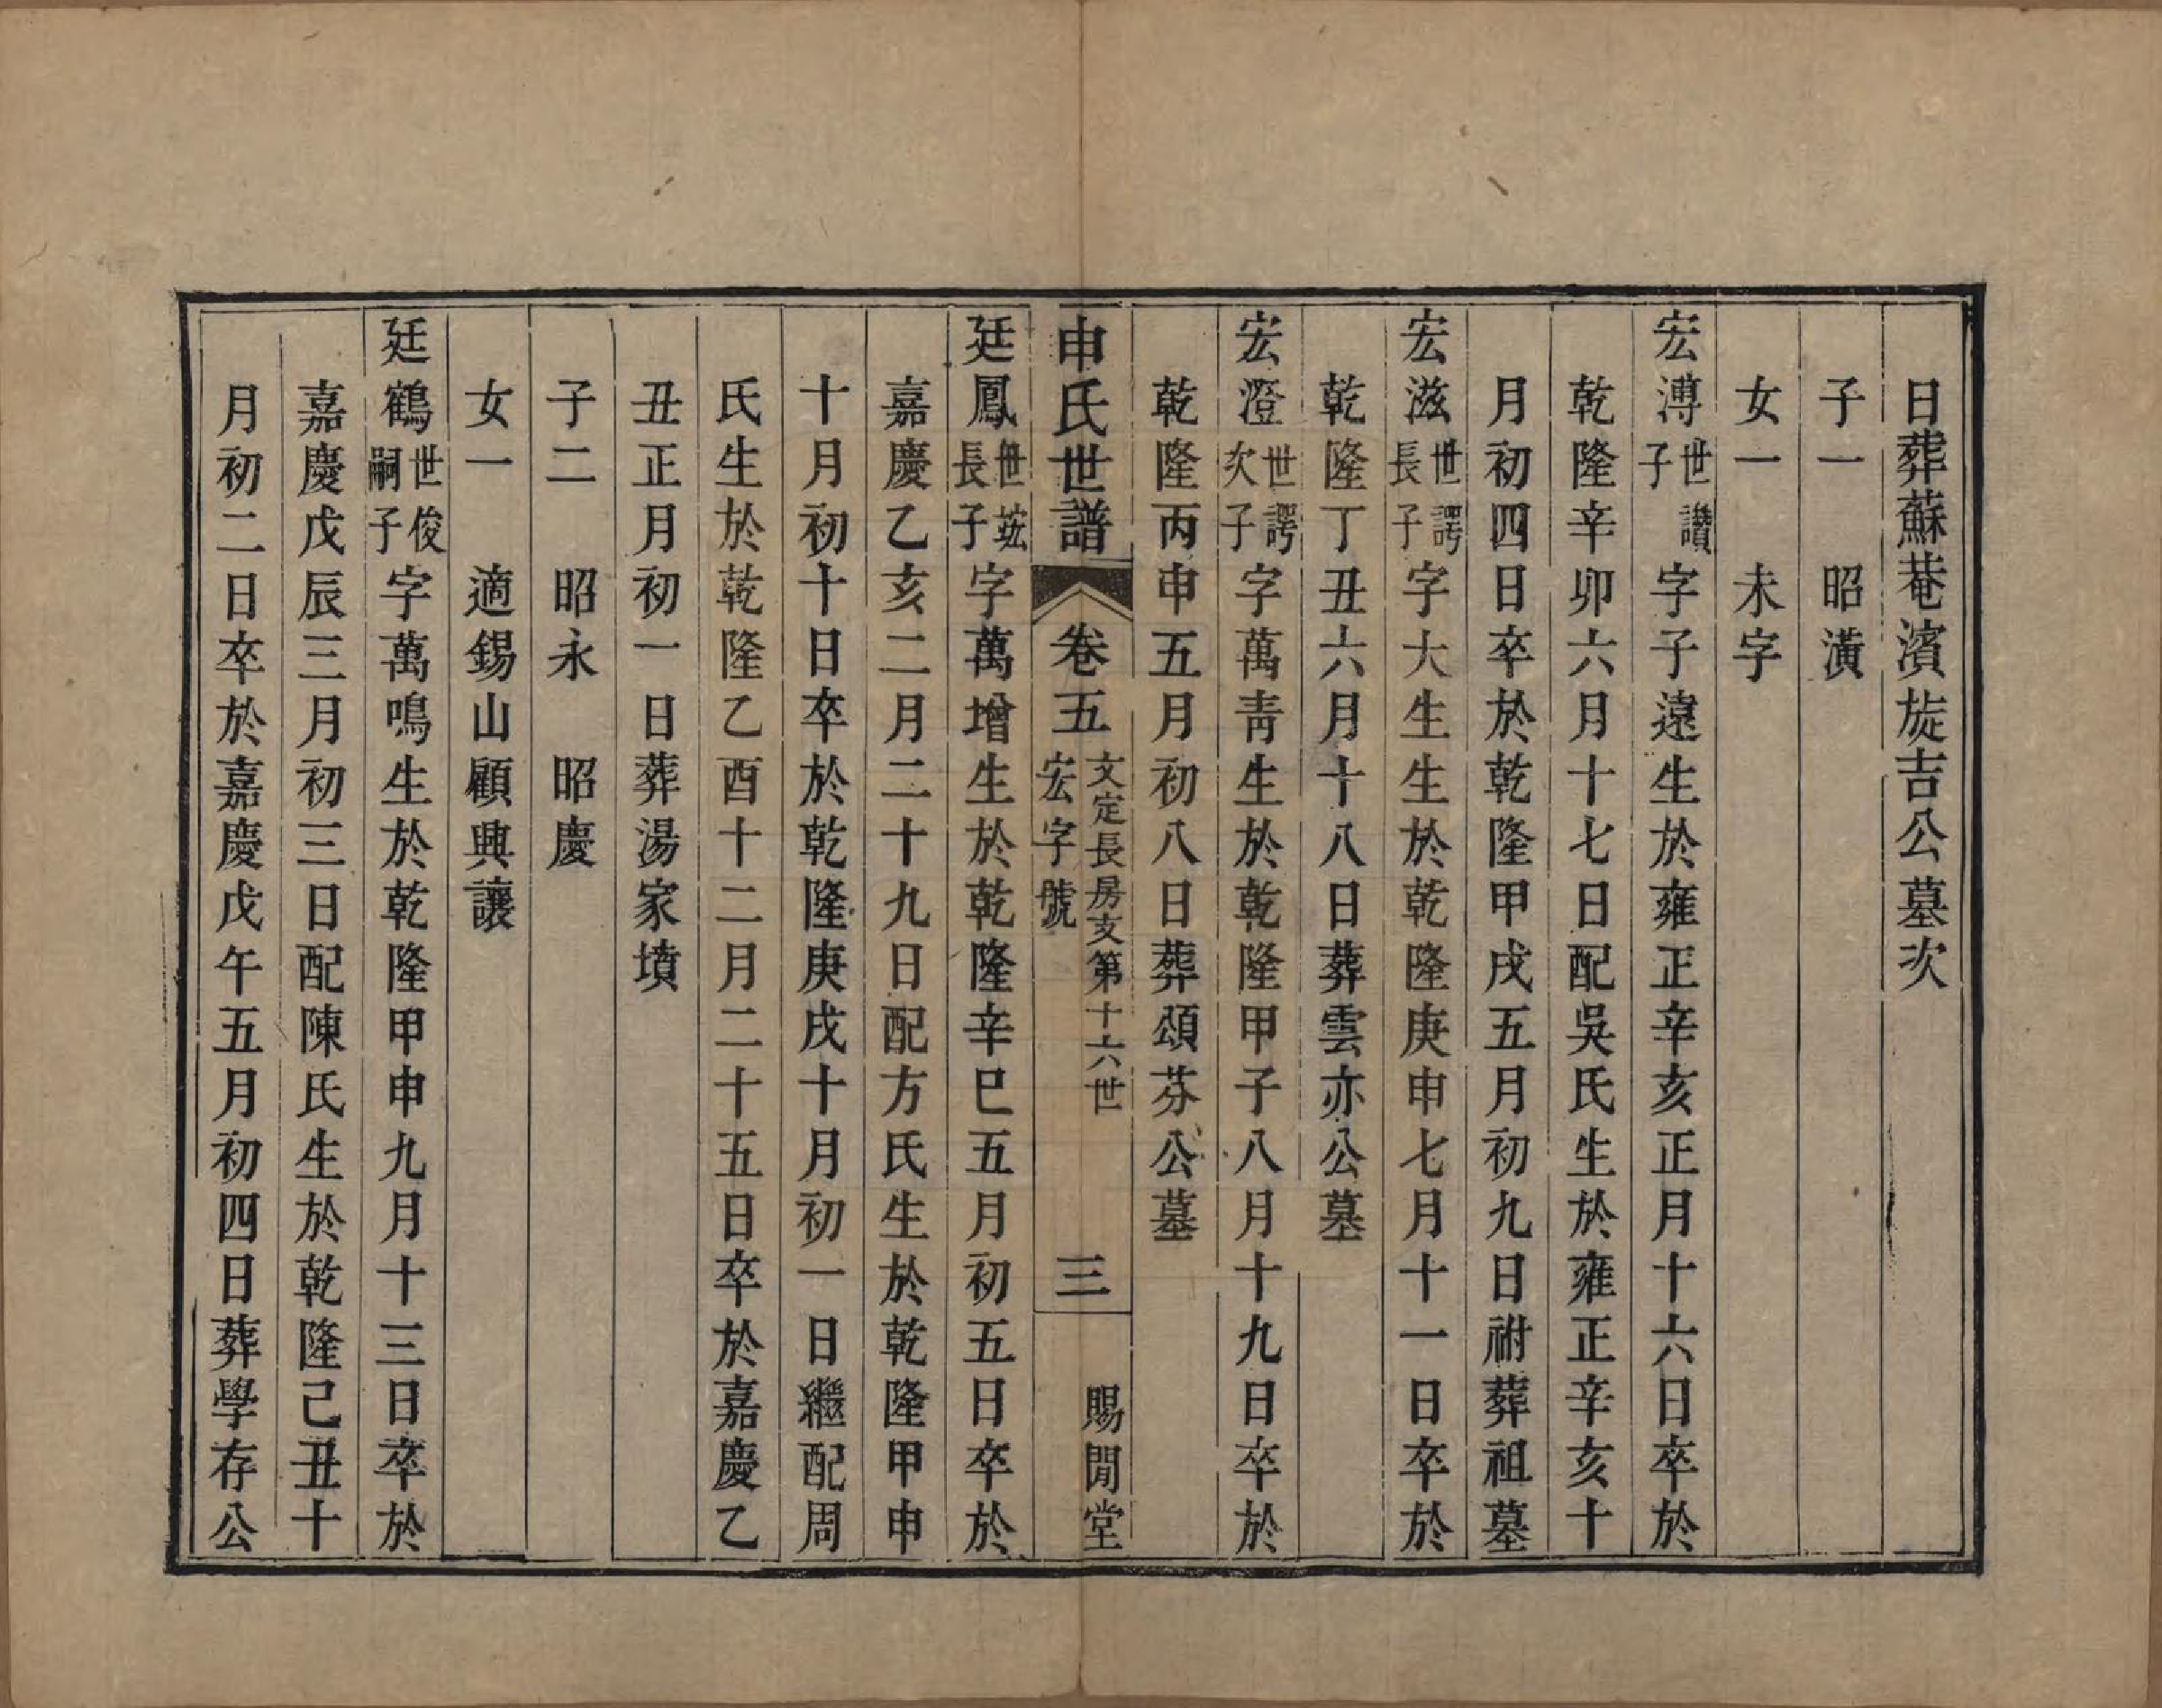 日葬蘇菴濱旋吉公墓次
子一　昭潢
女一　未字
宏溥世讚子字子遠生於雍正辛亥正月十六日卒於
乾隆辛卯六月十七日配吳氏生於雍正辛亥十
月初四日卒於乾隆甲戌五月初九日祔葬祖墓
宏滋世諤長子字大生生於乾隆庚申七月十一日卒於
乾隆丁丑六月十八日葬雲亦公墓
宏澄世諤次子字萬青生於乾隆甲子八月十九日卒於
乾隆丙申五月初八日葬頌芬公墓
申氏世譜　卷五　文定長房亥第十六世　宏字號　三　賜閒堂
廷鳳世竑長子字萬增生於乾隆辛巳五月初五日卒於
嘉慶乙亥二月二十九日配方氏生於乾隆甲申
十月初十日卒於乾隆庚戌十月初一日繼配周
氏生於乾隆乙酉十二月二十五日卒於嘉慶乙
丑正月初一日葬湯家墳
子二　昭永　昭慶
女一　適錫山顧興讓
廷鶴世俊嗣子字萬鳴生於乾隆甲申九月十三日卒於
嘉慶戊辰三月初三日配陳氏生於乾隆己丑十
月初二日卒於嘉慶戊午五月初四日葬學存公